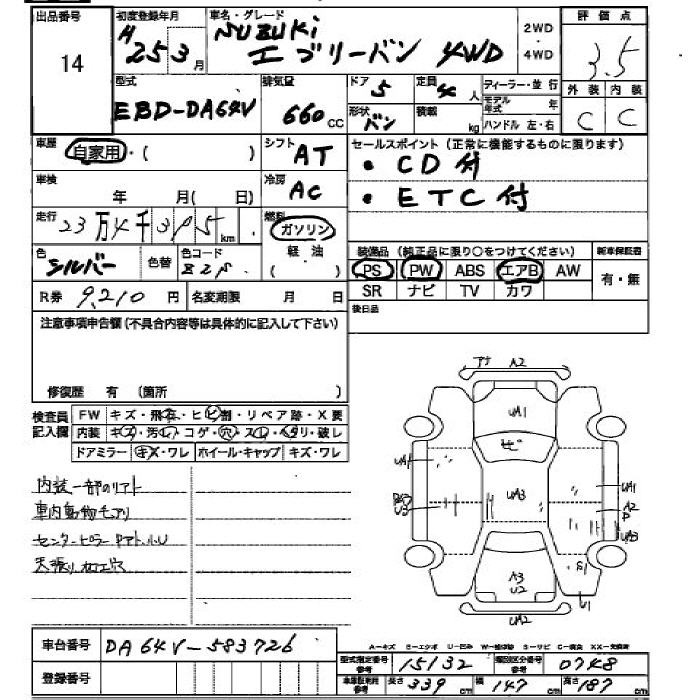 出品番号
14
初度登録年月
H 25 3月
車名・グレード
SUZUKi
エブリーバン 4WD
2WD
・
4WD
評価点
3.5
外装 内装
C C
型式
EBD-DA64V
排気量
660cc
ドア 5
形状 バン
定員 4人
積載 kg
ディーラー・並行
モデル年式 年
ハンドル 左・右
車歴
自家用・( )
シフト AT
セールスポイント (正常に機能するものに限ります)
・CD付
・ETC付
車検
年 月( 日)
冷房 AC
走行
23万4千
km
燃料
ガソリン
軽・油
・( )
色
シルバー
色替
色コード
装備品 (純正品に限り○をつけてください)
新車保証書
PS PW ABS エアB AW
SR ナビ TV カワ
有・無
R券 9,210円
名変期限 月 日
後日品
注意事項申告欄(不具合内容等は具体的に記入して下さい)
修復歴 有 (箇所 )
検査員
記入欄
FW キズ・飛石・ヒビ割・リペア跡・X要
内装 キズ・汚レ・コゲ・穴・スレ・ヘタリ・破レ
ドアミラー キズ・ワレ ホイール・キャップ キズ・ワレ
内装一部のリアト
車内動物モアリ
センターピラー
A2
UA1
ヒビ
UA1
UA3
U3
UA1
A2
P
UA3
S1
A3
U2
U1
UA2
A－キズ E－エクボ U－凹み W－補修跡 S－サビ C－腐食 XX－交換済
車台番号 DA64V-583726
登録番号
型式指定番号
参考
15132
類別区分番号
参考
0748
車庫証明用
参考
長さ 339cm
幅 147cm
高さ 187cm